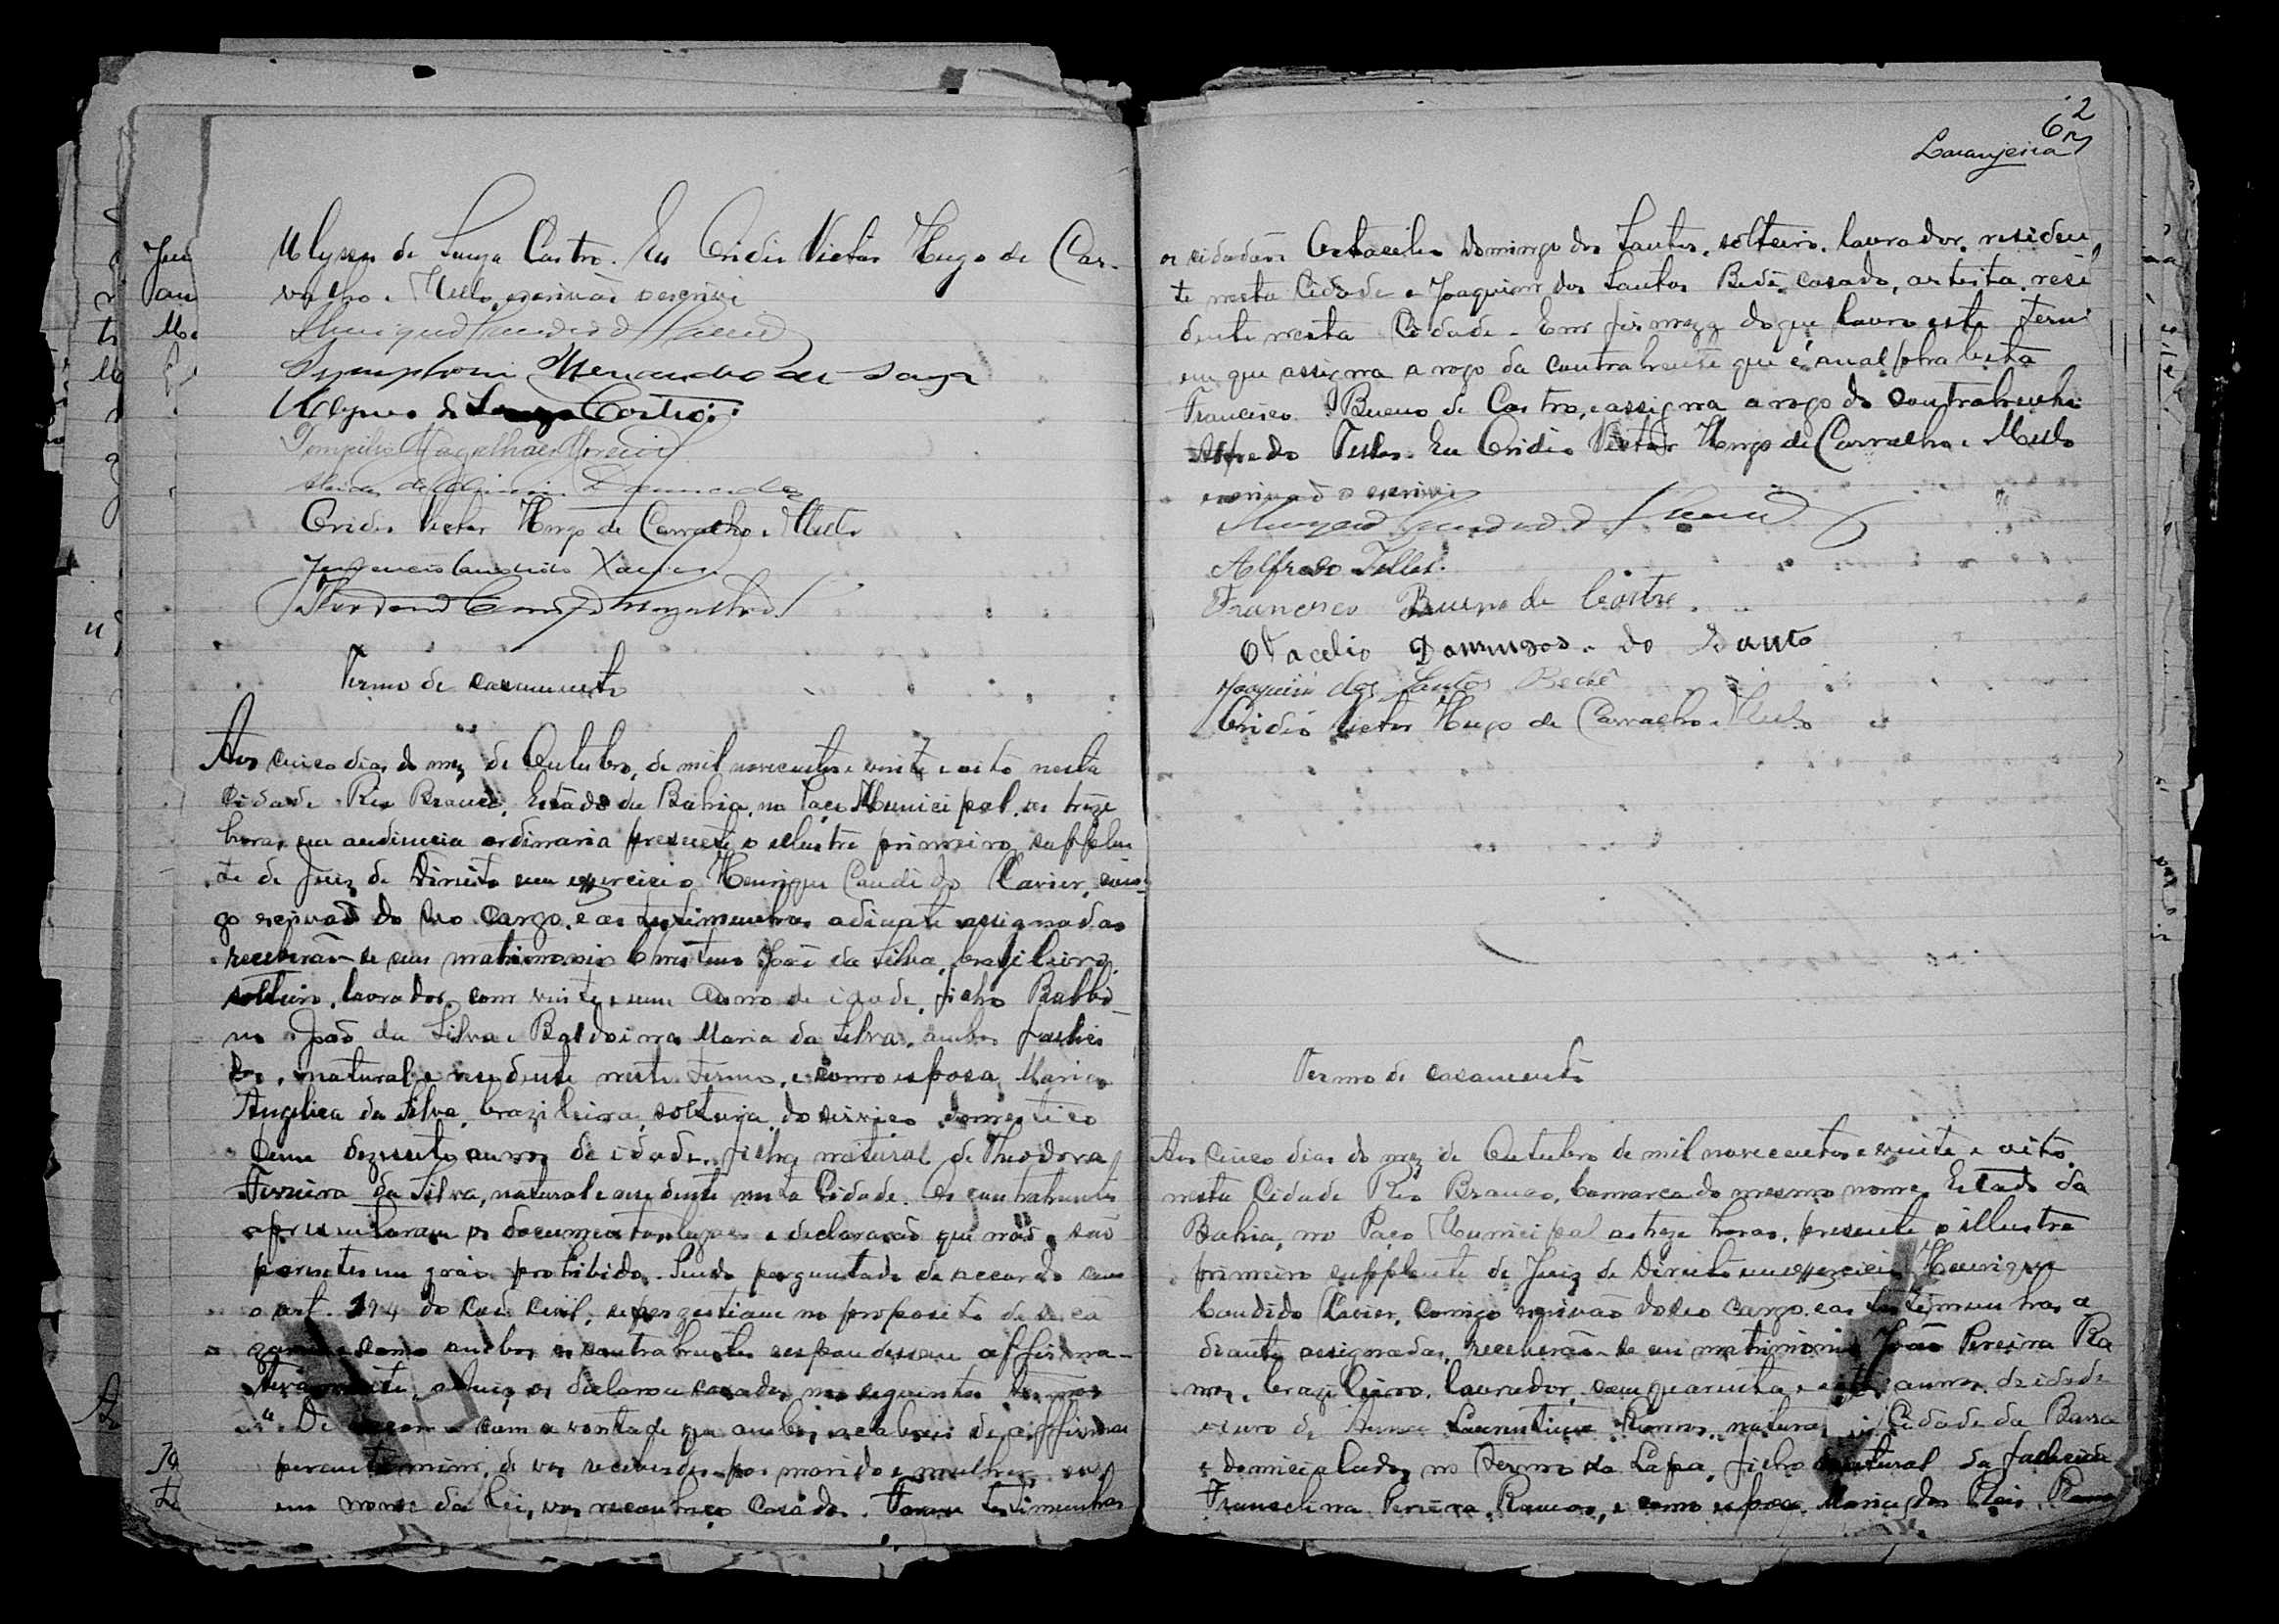 Ulysses de Souza Castro. Eu Ovidio Victor Hugo de Car-
valho e Mello, escrivão o escrevi
Menandro de Souza
Ulysses de Souza Castro
Pompilio Magalhães Moreira
Ovidio Victor Hugo de Carvalho e Mello
Candido Xavier
Termo de casamento
Aos cinco dias do mez de Outubro, de mil novecentos e vinte e oito nesta
Cidade Rio Branco, Estado da Bahia, no Paço Municipal, as treze
horas, em audiencia ordinaria presente o illustre primeiro supplen
te de Juiz de Direito em exercicio Henrique Candido Xavier, comi-
go escrivão do seo cargo, e as testimunhas adiante assignadas
receberão-se em matrimonio João da Silva, brazileiro,
solteiro, lavrador, com vinte e um annos de idade, filho Balbi-
no João da Silva e Baldoina Maria da Silva, ambos falleci
dos, natural e residente neste Termo, e como esposa Maria
Angelica da Silva, brazileira, solteira, do serviço domestico
com dezesete annos de idade, filha natural de Theodora
Ferreira da Silva, natural e residente nesta Cidade. Os contrahentes
apresentaram os documentos legaes e declararão que não são
parentes em gráo prohibido. Sendo perguntado de accordo com
o art. 194 do Cod. Civil, se persestiam no proposito de se ca
zarem e como ambos os contrahentes respondessem affirma-
tivamente, o Juiz os declarou casados nos seguintes termos
"De accordo com a vontade que ambos acabaes de affirmar
perante mim, de vos receberdes por marido e mulher, eu,
em nome da lei, vos reconheço casados. Foram testimunhas
62
Laranjeira
os cidadãos Octacilio Domingo dos Santos, solteiro, lavrador, residen
te nesta Cidade e Joaquim dos Santos Bedê, casado, artista, resi
dente nesta Cidade. Em firmeza do que lavro este termo
em que assigna a rogo da contrahente que é analphabeta
Francisco Bueno de Castro, e assigna a rogo do contrahente
Alfredo Telles. Eu Ovidio Victor Hugo de Carvalho e Mello
escrivão o escrevi
Alfredo Telles.
Francisco Bueno de Castro.
Otacelio Domingos do Santo
Joaquim dos Santos Bedê
Ovidio Victor Hugo de Carvalho e Mello
Termo de casamento
Aos cinco dias do mez de Outubro de mil novecentos e vinte e oito,
nesta Cidade Rio Branco, Comarca do mesmo nome, Estado da
Bahia, no Paço Municipal as treze horas, presente o illustre
primeiro supplente de Juiz de Direito em exercicio Henrique
Candido Xavier, comigo escrivão do seo cargo e as testemunhas a
diante assignadas, receberão-se em matrimonio João Pereira Ra
mos, brazileiro, lavrador, com quarenta e annos de idade
viuvo de Ramos, natural Cidade da Barra
e domiciliado no Termo da Lapa, filho natural da fallecida
Francelina Pereira Ramos, e como esposa Maria dos Reis Ramos